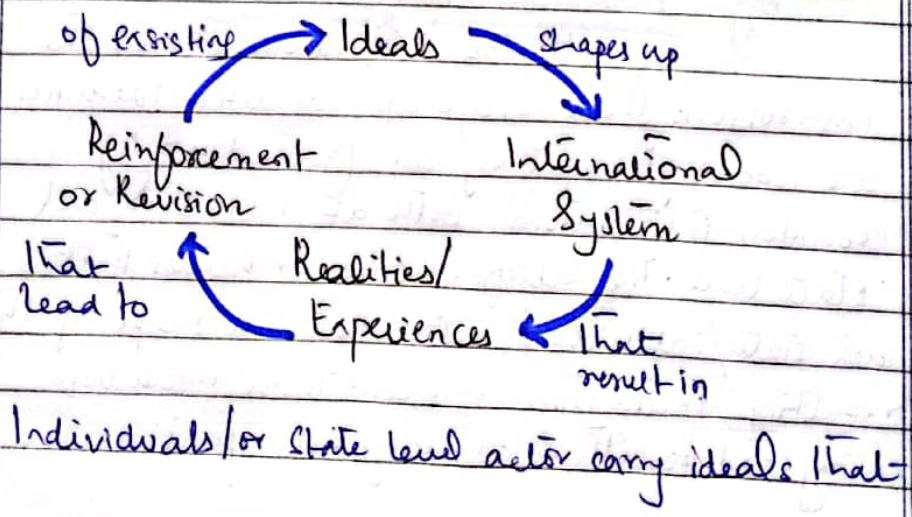 of exsisting
Ideals
shapes up
Reinforcement
or Revision
International
System
That
lead to
Realities/
Experiences
That
result in
Individuals/or State level actor carry ideals that